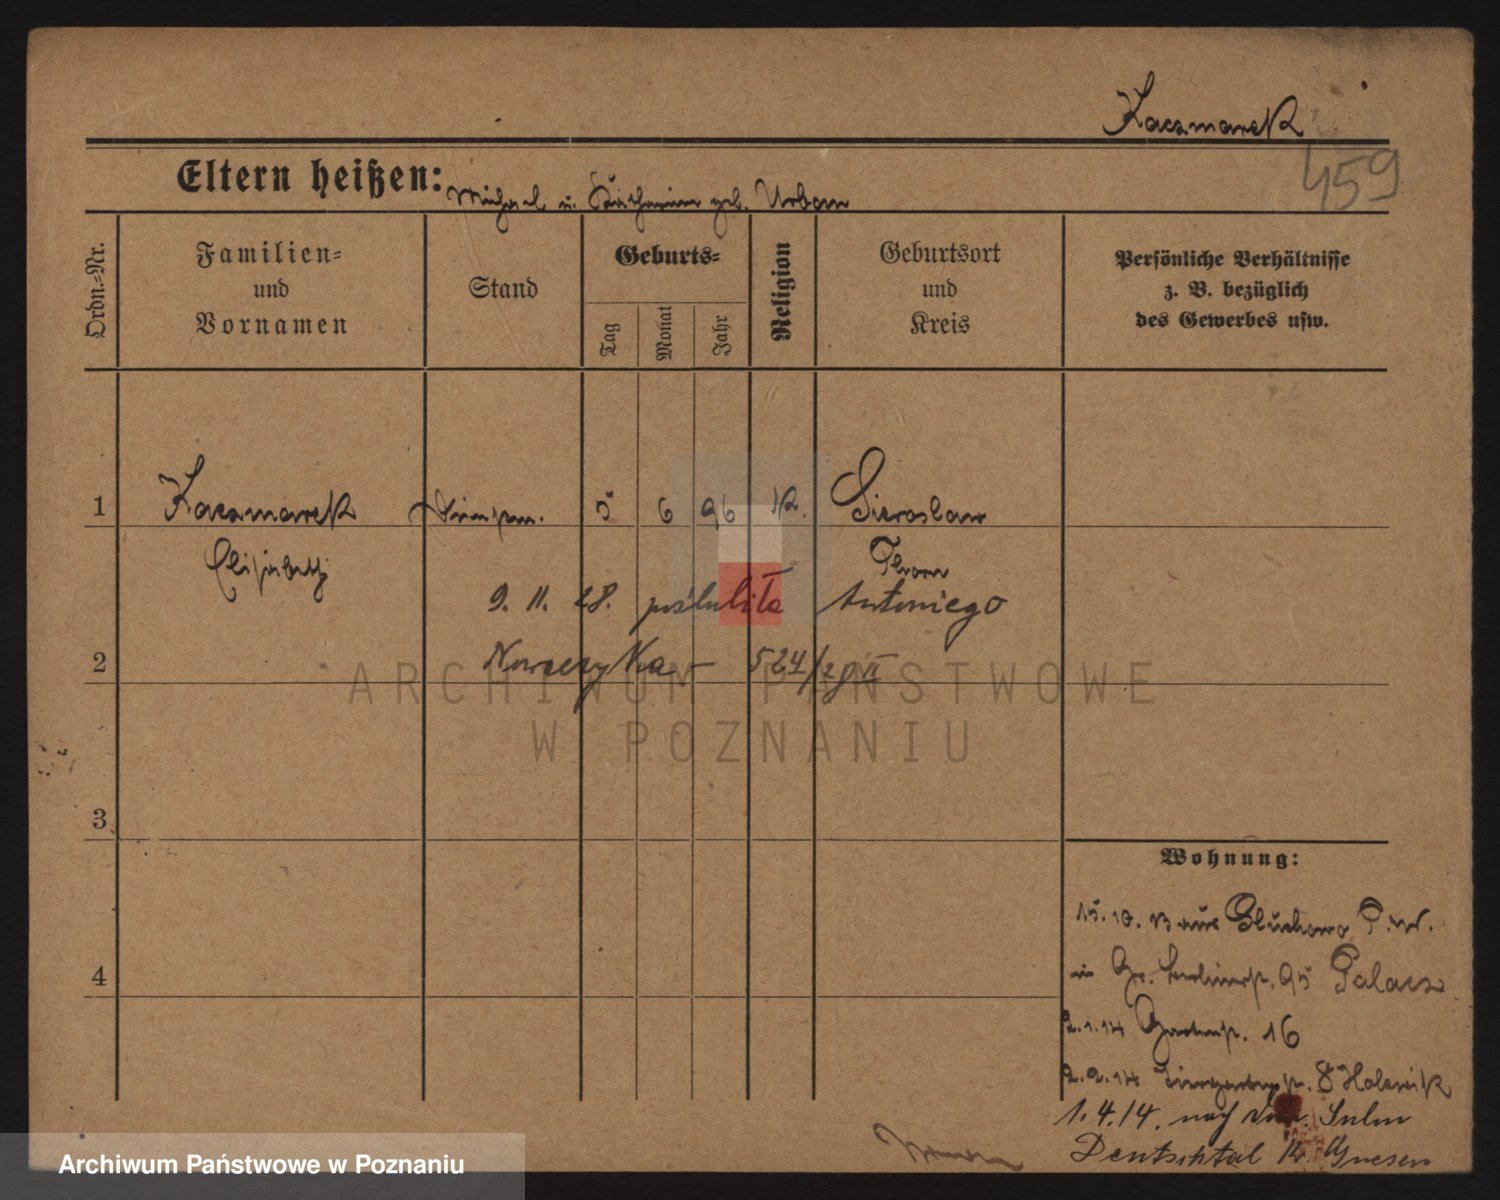 Kaczmarek
459
Eltern heißen: Michael u. Katharina geb. Urban
Ordn.-Nr.
Familien- und Vornamen
Stand
Geburts-
Tag
Monat
Jahr
Religion
Geburtsort und Kreis
Persönliche Verhältnisse z. B. bezüglich des Gewerbes usw.
1 Kaczmarek 5 6 96 K. Sieroslaw
Elisabeth Thorn
9. 11. 28. poślubiła Antoniego
2 Nowaczyka – 524/28 II
3
4
Wohnung:
15. 10. 13 aus Gluchowo P.W.
in Gr. Berlinerstr. 95 Palacz
2.1.14 Gartenstr. 16
2.2.14 Tiergartenstr. 8
1.4.14. nach
Deutschtal Kr. Gnesen
ARCHIWUM PAŃSTWOWE
W POZNANIU
Archiwum Państwowe w Poznaniu